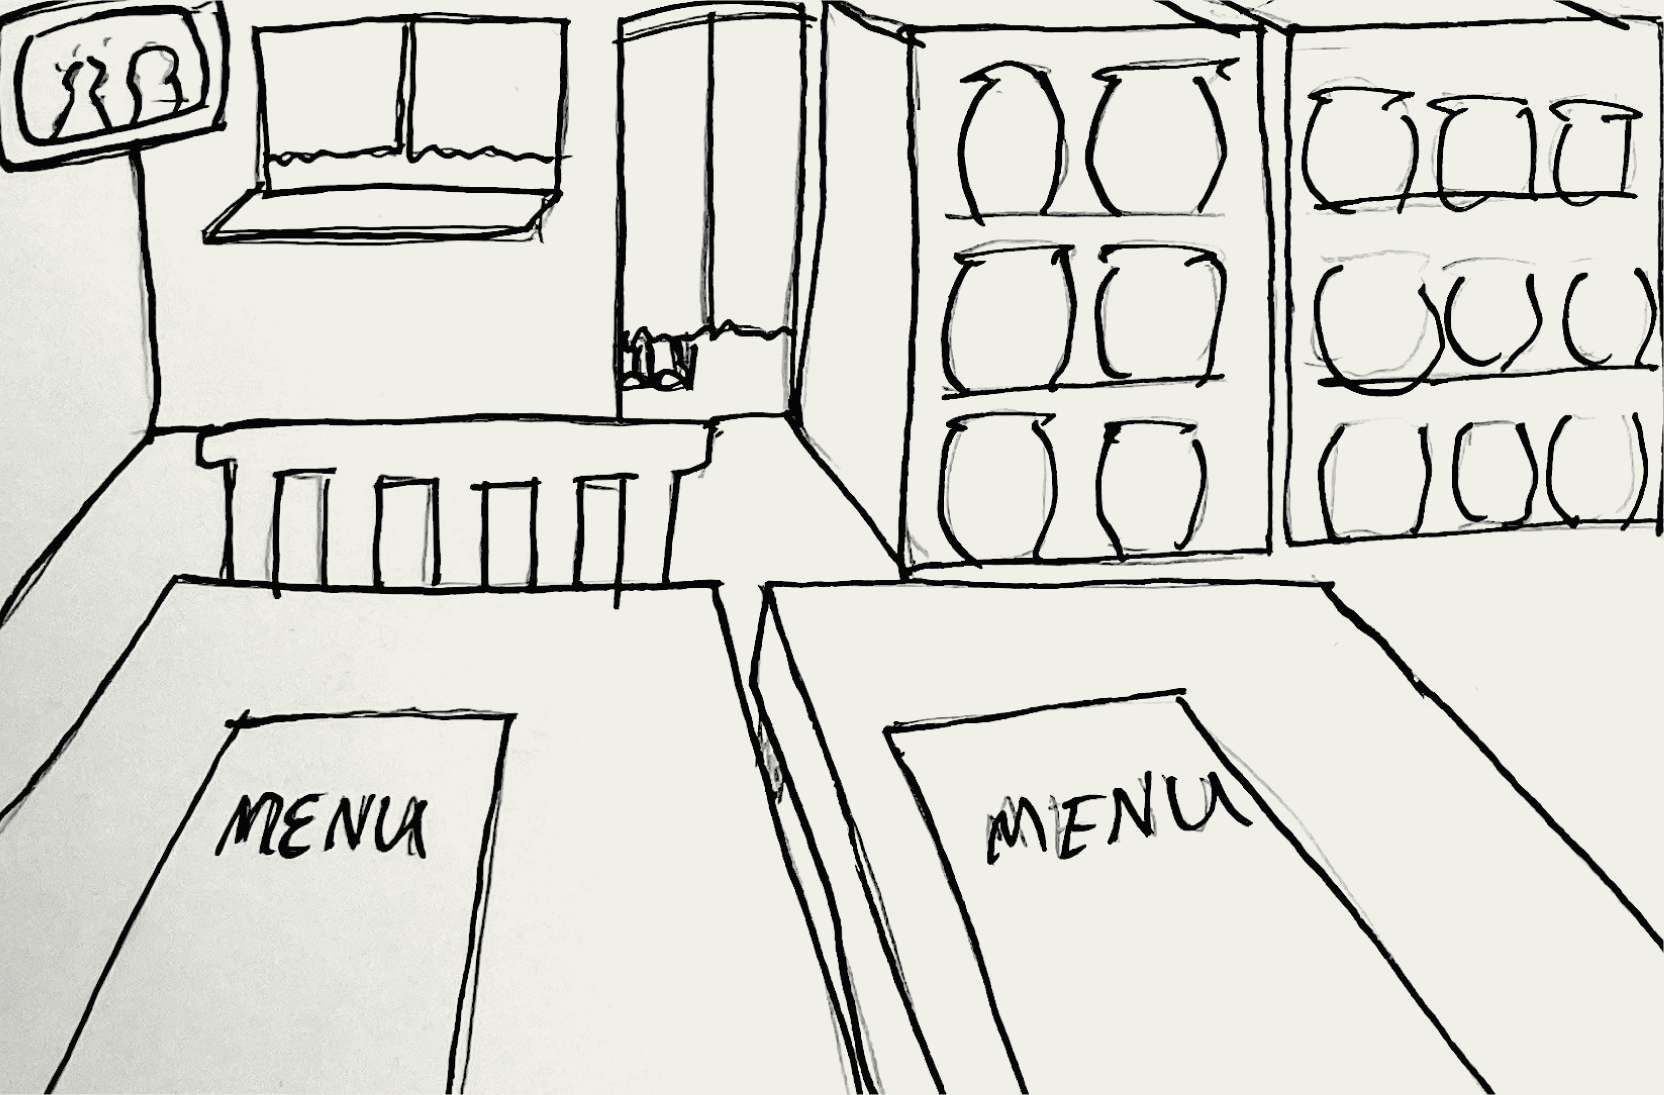 MENU
MENU